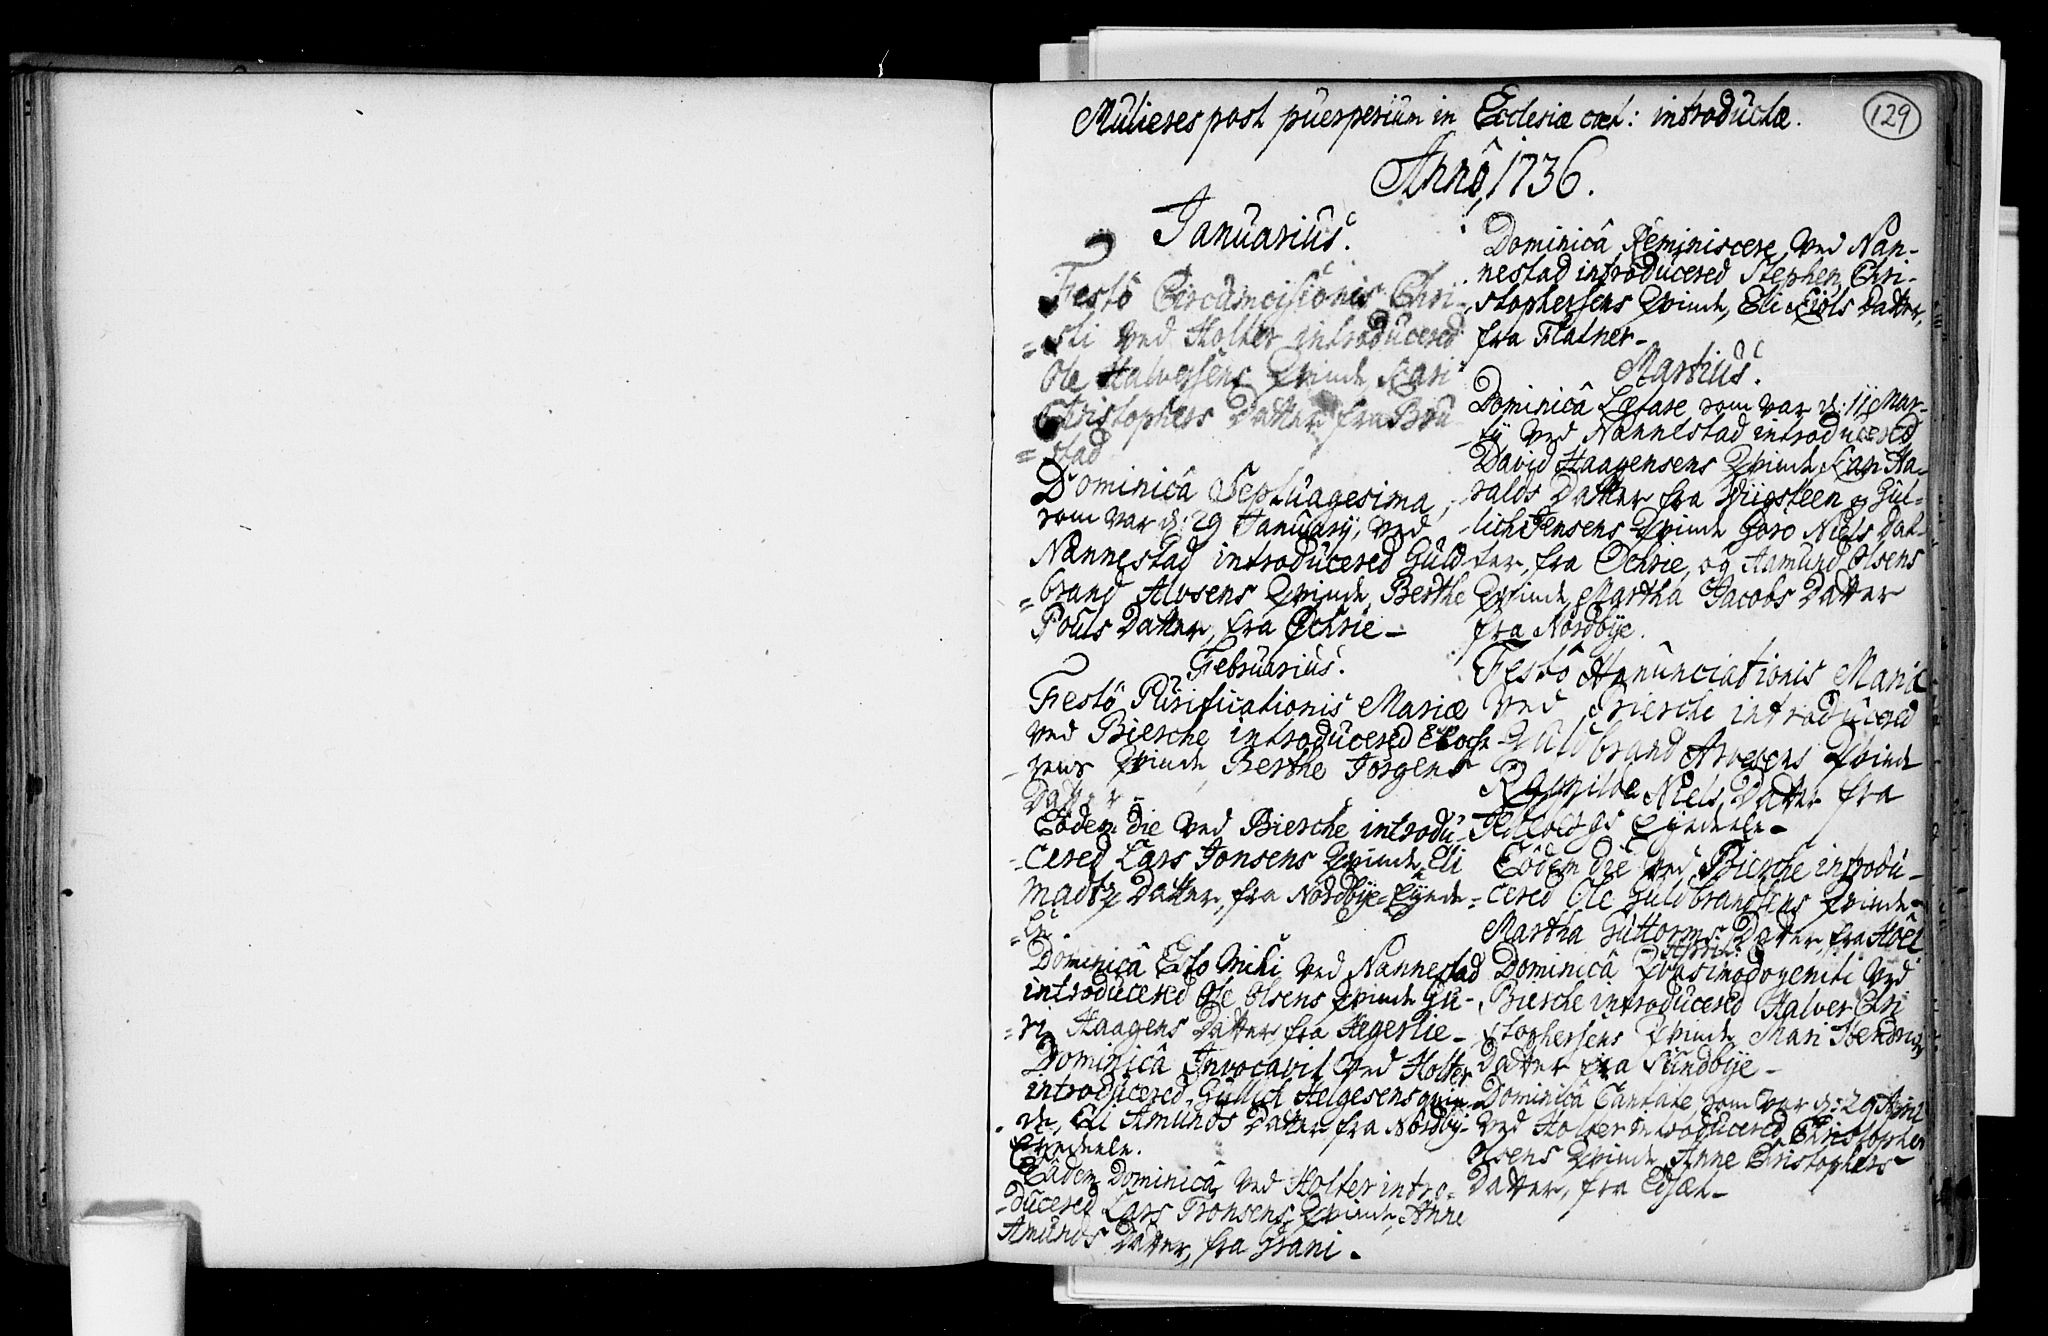 129
Mulieres post puerperium in Ecclesiæ cæt: introductæ.
Annô, 1736.
Januarius.
Festô Circumcisionis Chri-
=sti ved Holter introducered
Ole Halvorsens Qvinde, Kari
Christophers Datter fra Bru
=stad
Dominicâ Septuagesima,
som var d: 29 Januarij, ved
Nannestad introducered Guld
=brand Alvsens Qvinde, Berthe
Pouls Datter, fra Ochrie-
Februarius.
Festô Purificationis Mariæ
ved Bierche introducered
-zens Qvinde, Berthe Jørgens
Datter-
Eôdem die ved Bierche introdu
-cered Lars Jonsens Qvinde, Eli
Madtz Datter, fra Nordbye=Eyede
=le.
Dominicâ Esto Mihi ved Nannestad
introducered Ole Olsens Qvinde Gu-
=ri Haagens Datter fra Hegerlie-
Dominicâ Invocavit ved Holter
introducered Gullich Helgesens qvin
de, Eli Amunds Datter fra Nordby-
Eyedeele.
Eâdem Dominicâ ved Holter intro-
-ducered Lars Tronsens Qvinde, Anne
Amunds Datter, fra Grani.
Dominicâ Reminiscere ved Nan-
nestad introducered Stephen Chri-
stophersens Qvinde, Eli Kiøls Datter,
fra Flatner-
Martius.
Dominicâ Lætare som var d: 11 Mar-
-tij ved Nannestad introducered
David Haagensens Qvinde Kari Ha-
ralds Datter fra Viigsteen og Gul-
lich Jensens Qvinde Goro Niels Dat-
ter, fra Ochrie, og Aamund Olsens
Qvinde Martha Jacobs Datter
fra Nordbye.
Festô Annunciationis Mariæ
ved Bierche introducered
Guldbrand Arvesens Qvinde
Ragnilde Niels Datter fra
Holbergs Eyedeele-
Eôdem die ved Bierche introdu-
cered Ole Guldbrandsens Qvinde
Martha Guttorms Datter fra Hoel
Aprilis
Dominicâ Qvasimodogeniti ved
Bierche introducered Halver Chri
stophersens Qvinde Mari Hendrigs
Datter fra Sundbye-
Dominicâ Cantate som var d: 29 April
ved Holter introducered Christopher
Olsens Qvinde Anne Christophers
Datter, fra